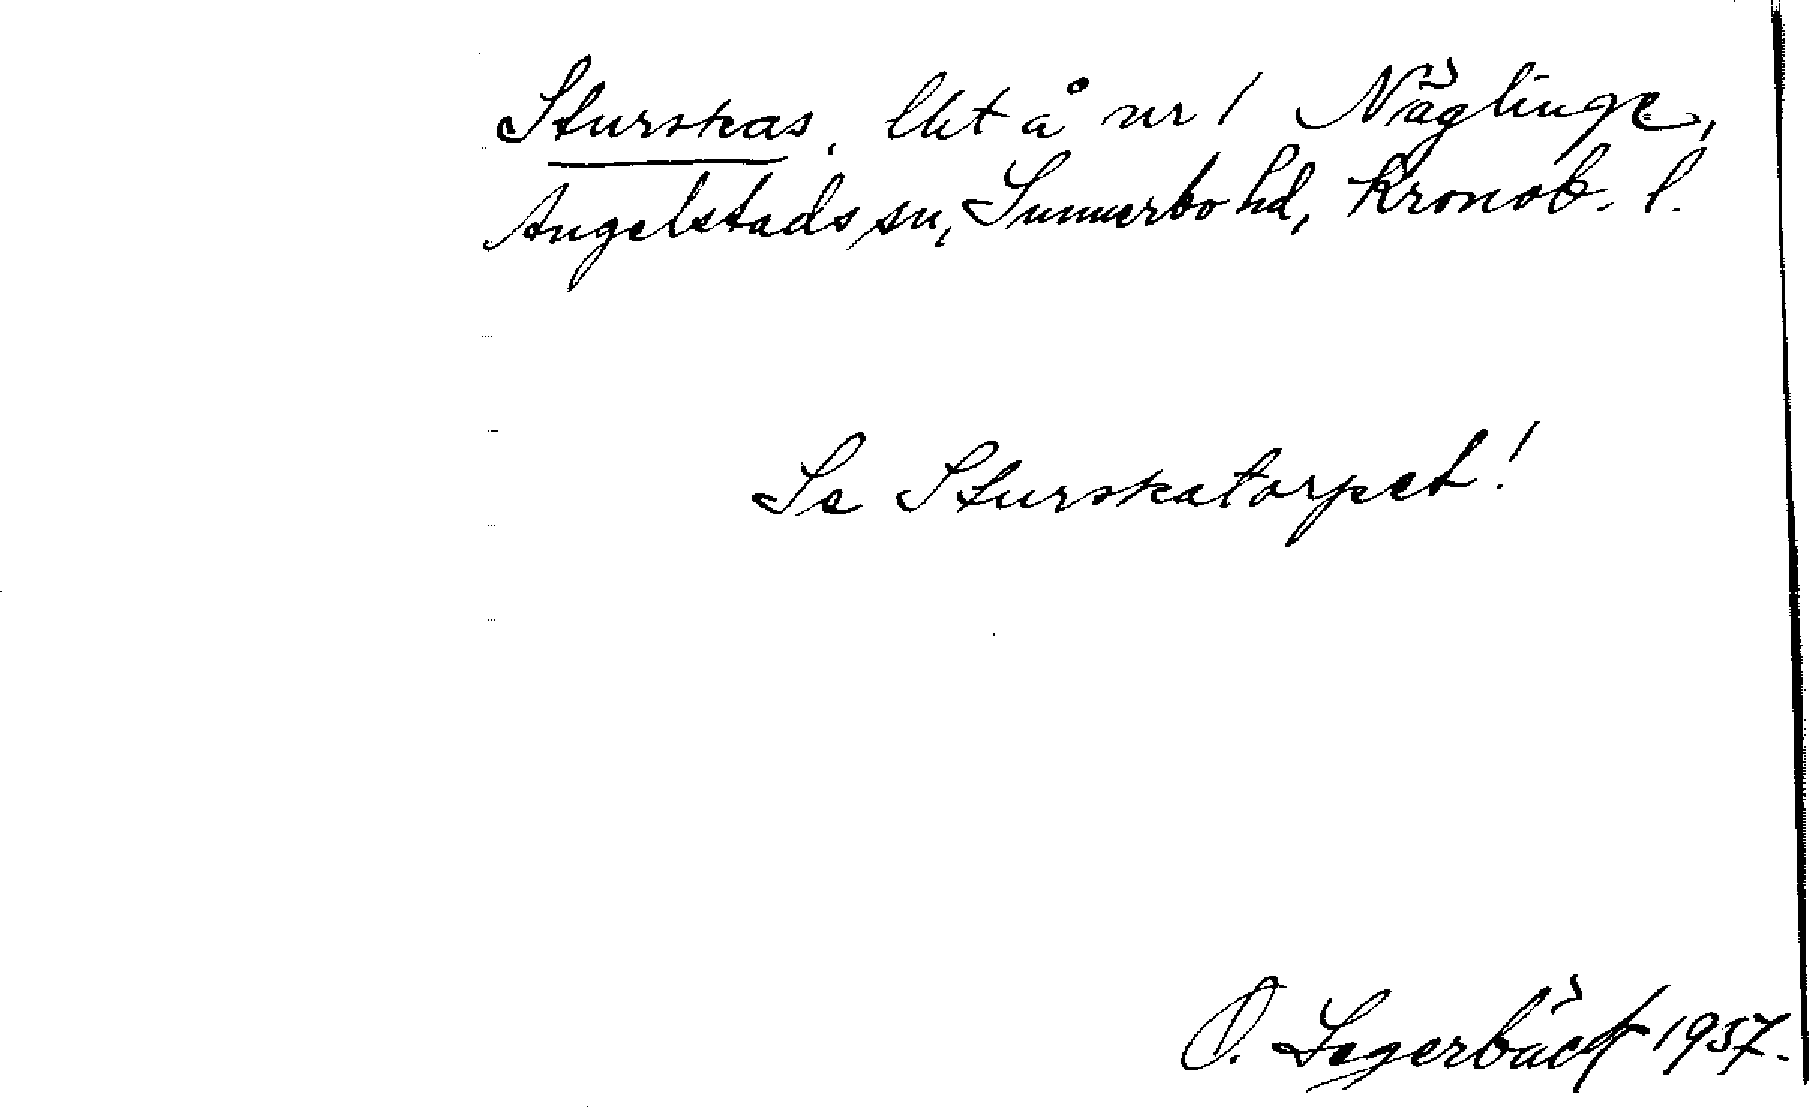 Sturskas, lht å nr 1 Näglinge,
Angelstads sn, Sunnerbo hd, Kronob. l.
Se Sturskatorpet!
O. Segerbäck 1957.